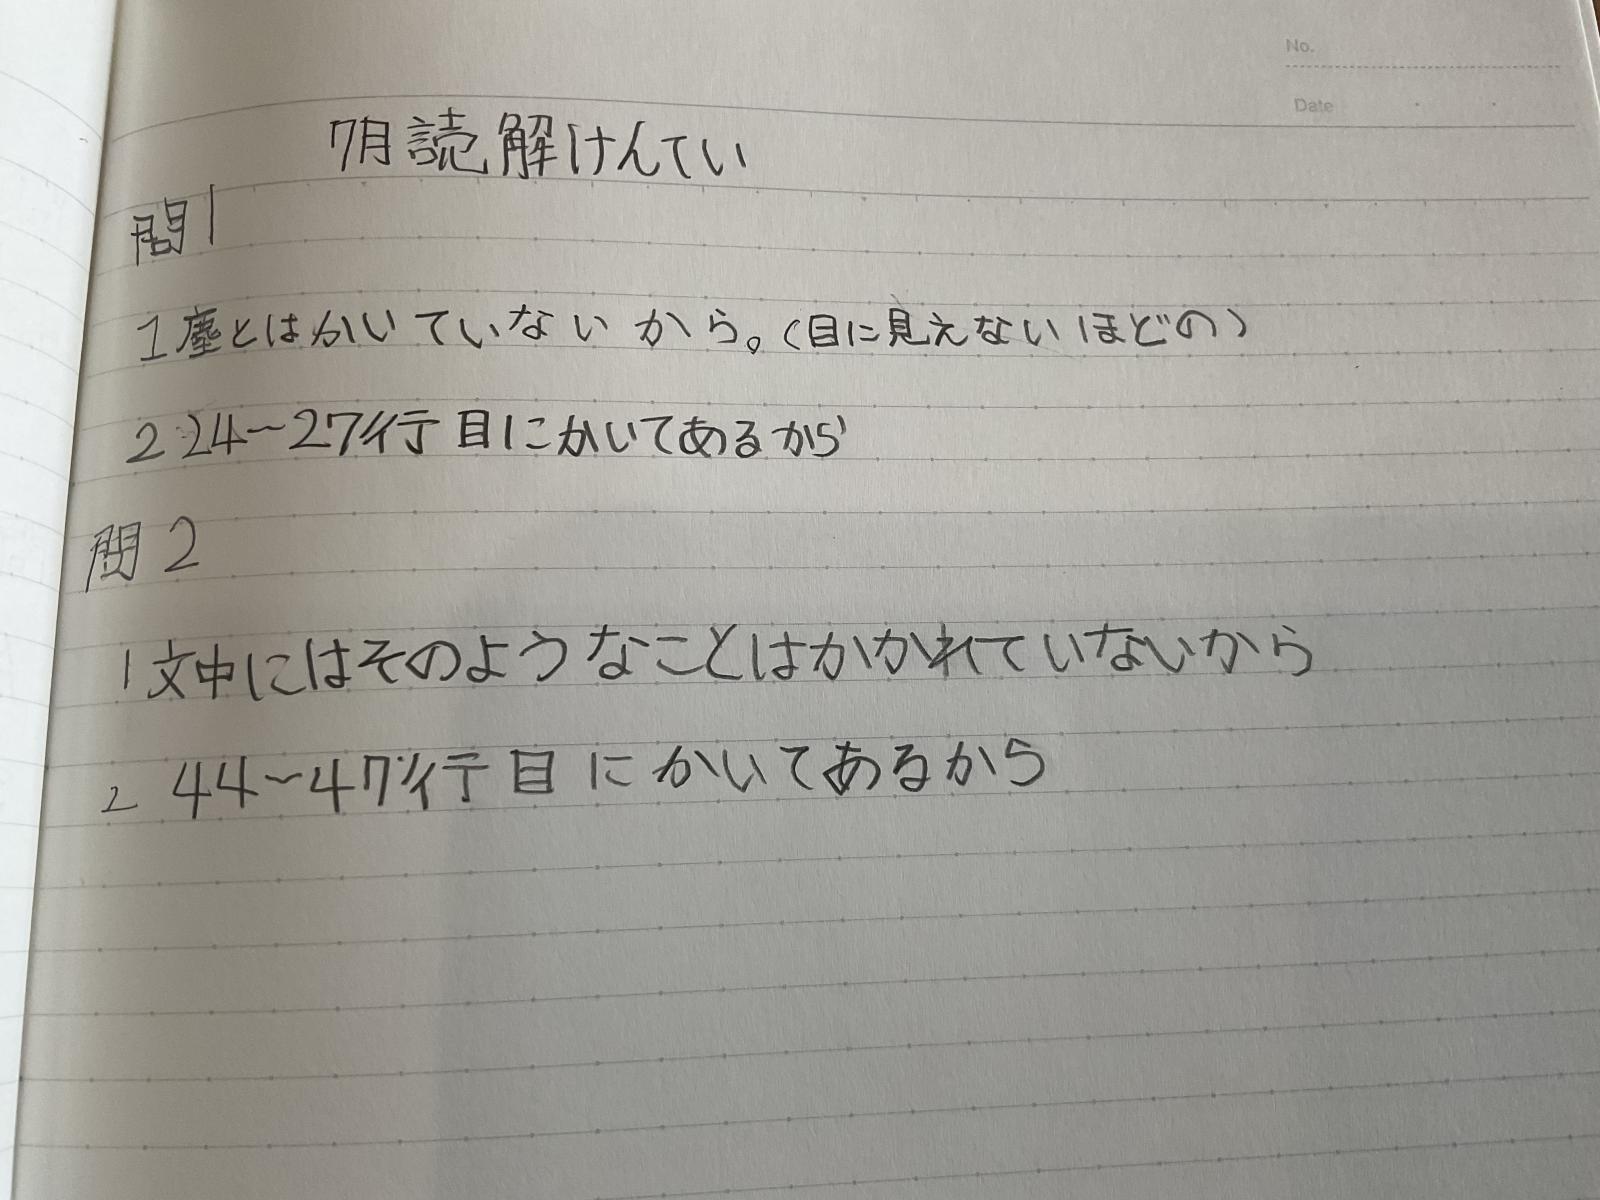 No.
Date
7月読解けんてい
問1
1塵とはかいていないから。(目に見えないほどの)
2 24〜27行目にかいてあるから
問2
1文中にはそのようなことはかかれていないから
2 44〜47行目にかいてあるから